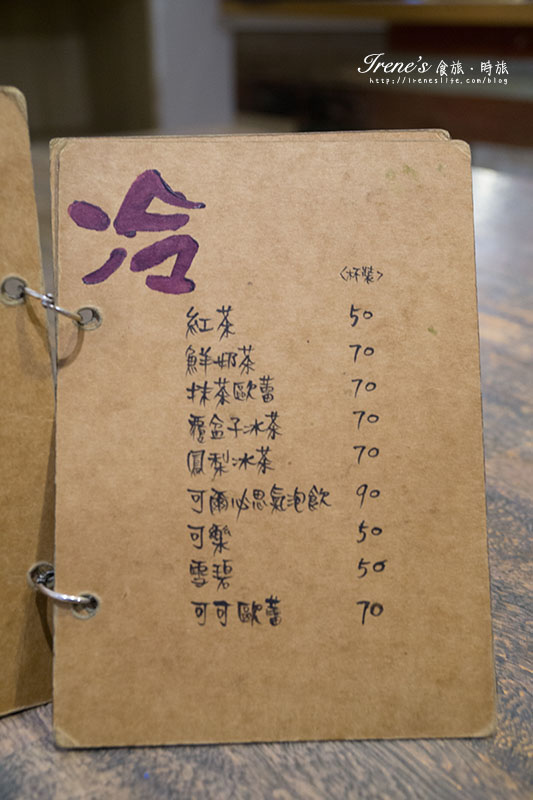 Irene's 食旅．時旅
http://ireneslife.com/blog
冷
〈杯裝〉
紅茶 50
鮮奶茶 70
抹茶歐蕾 70
覆盆子冰茶 70
鳳梨冰茶 70
可爾必思氣泡飲 90
可樂 50
雪碧 50
可可歐蕾 70